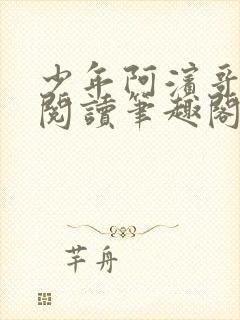 少年阿濱哥
閱讀筆趣閣
芊舟